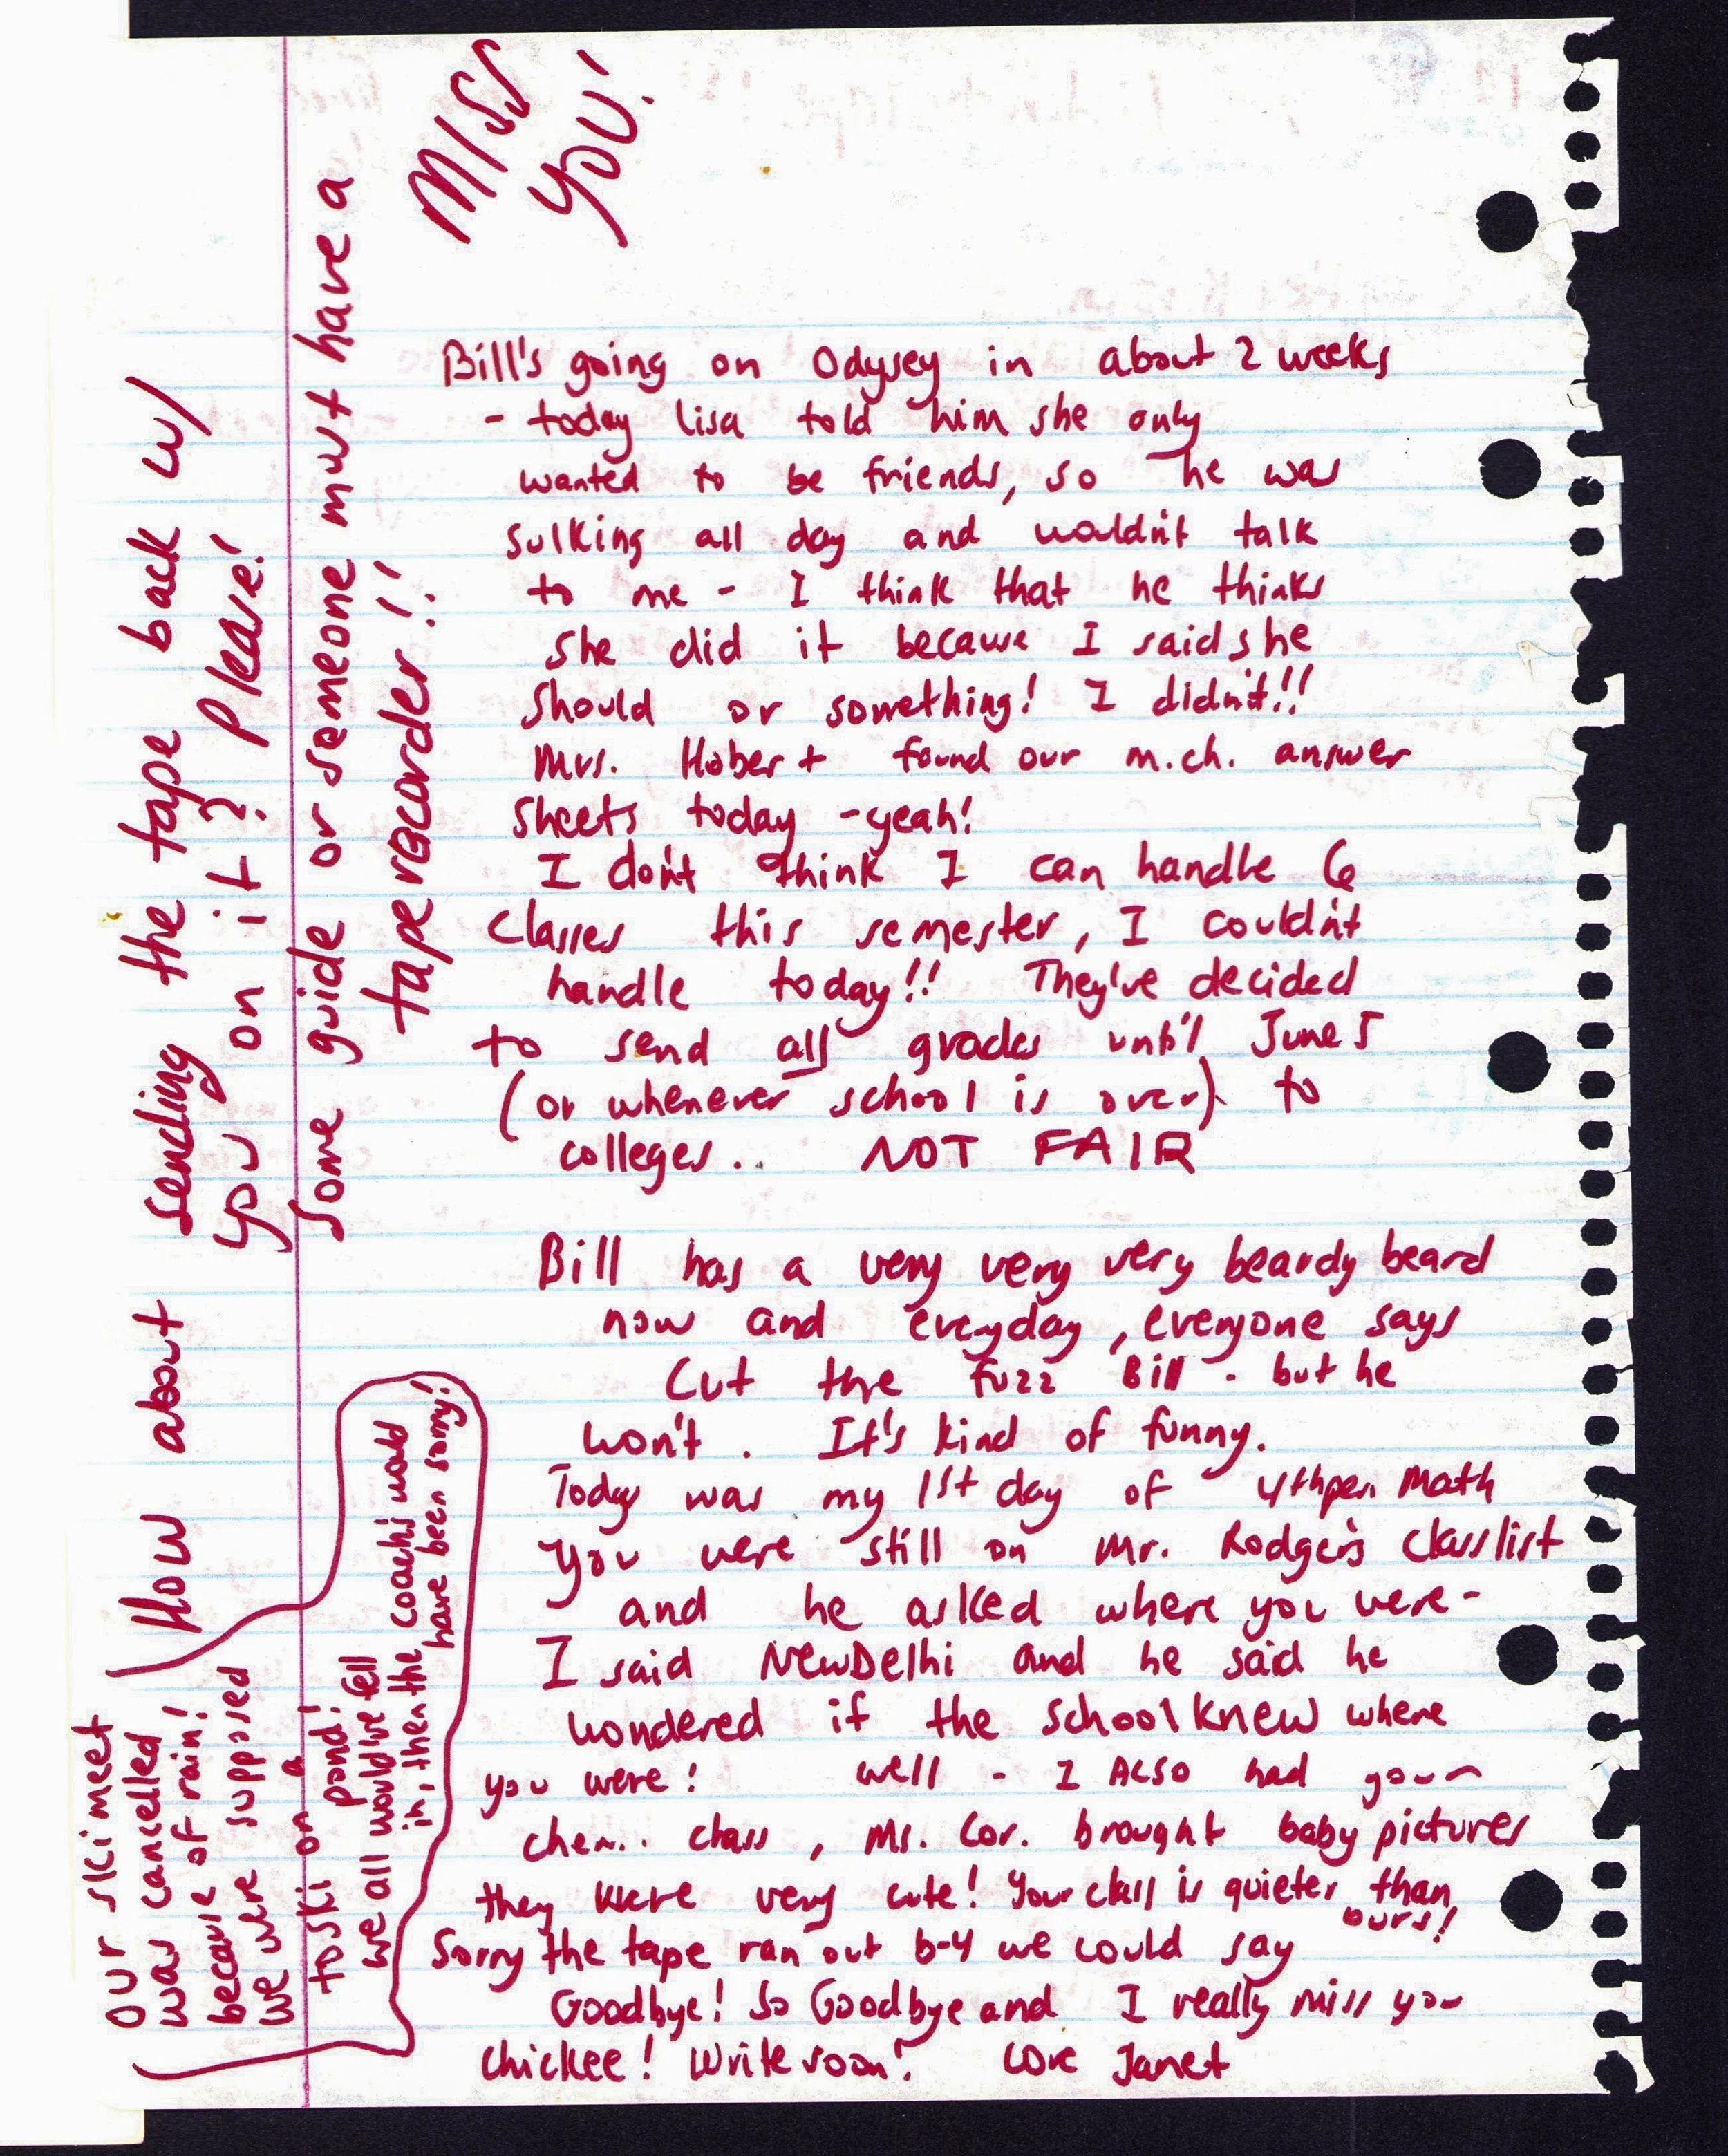 MISS
YOU!
Bill's going on Odysey in about 2 weeks
- today lisa told him she only
wanted to be friends, so he was
sulking all day and wouldn't talk
to me - I think that he thinks
she did it because I said she
should or something! I didn't!!
Mrs. Hobert found our m.ch. answer
sheets today - yeah!
I don't think I can handle 6
classes this semester, I couldn't
handle today!! They've decided
to send all grades until June 5
(or whenever school is over) to
colleges.. NOT FAIR
Bill has a very very very beardy beard
now and everyday, everyone says
Cut the fuzz Bill - but he
won't. It's kind of funny.
Today was my 1st day of 4thper. Math
You were still on Mr. Rodger's classlist
and he asked where you were -
I said NewDelhi and he said he
wondered if the school knew where
you were! well - I ALSO had your
chem.. class, Ms. Cor. brought baby pictures
they were very cute! Your class is quieter than
ours!
Sorry the tape ran out b-4 we could say
Goodbye! So Goodbye and I really miss you
chickee! Write soon! Love Janet
How about sending the tape back w/
you on it? Please!
Some guide or someone must have a
tape recorder!!
Our ski meet
was cancelled
because of rain!
we were supposed
to ski on a
pond!
we all would've fell
in, then the coachs would
have been sorry!